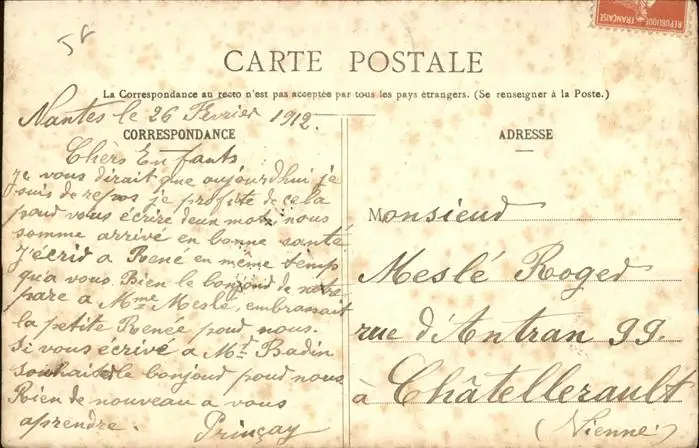 58
RÉPUBLIQUE FRANÇAISE
CARTE POSTALE
La Correspondance au recto n'est pas acceptée par tous les pays étrangers. (Se renseigner à la Poste.)
Nantes le 26 Février 1912.
CORRESPONDANCE
Chèrs Enfants
Je vous dirait que aujourd'hui je
suis de repos je profite de cela
pour vous écrire deux mots nous
somme arrivé en bonne santé
J'écrid a René en même temp
qu'a vous. Bien le bonjour de notre
pare a Mme Meslé, embrassait
la petite Renée pour nous.
Si vous écrivé a Md Badin
souhaité le bonjour pour nous
Rien de nouveau a vous
aprendre. Prinçay
ADRESSE
Monsieur
Meslé Roger
rue d'Antran 99.
à Châtellerault
(Vienne)